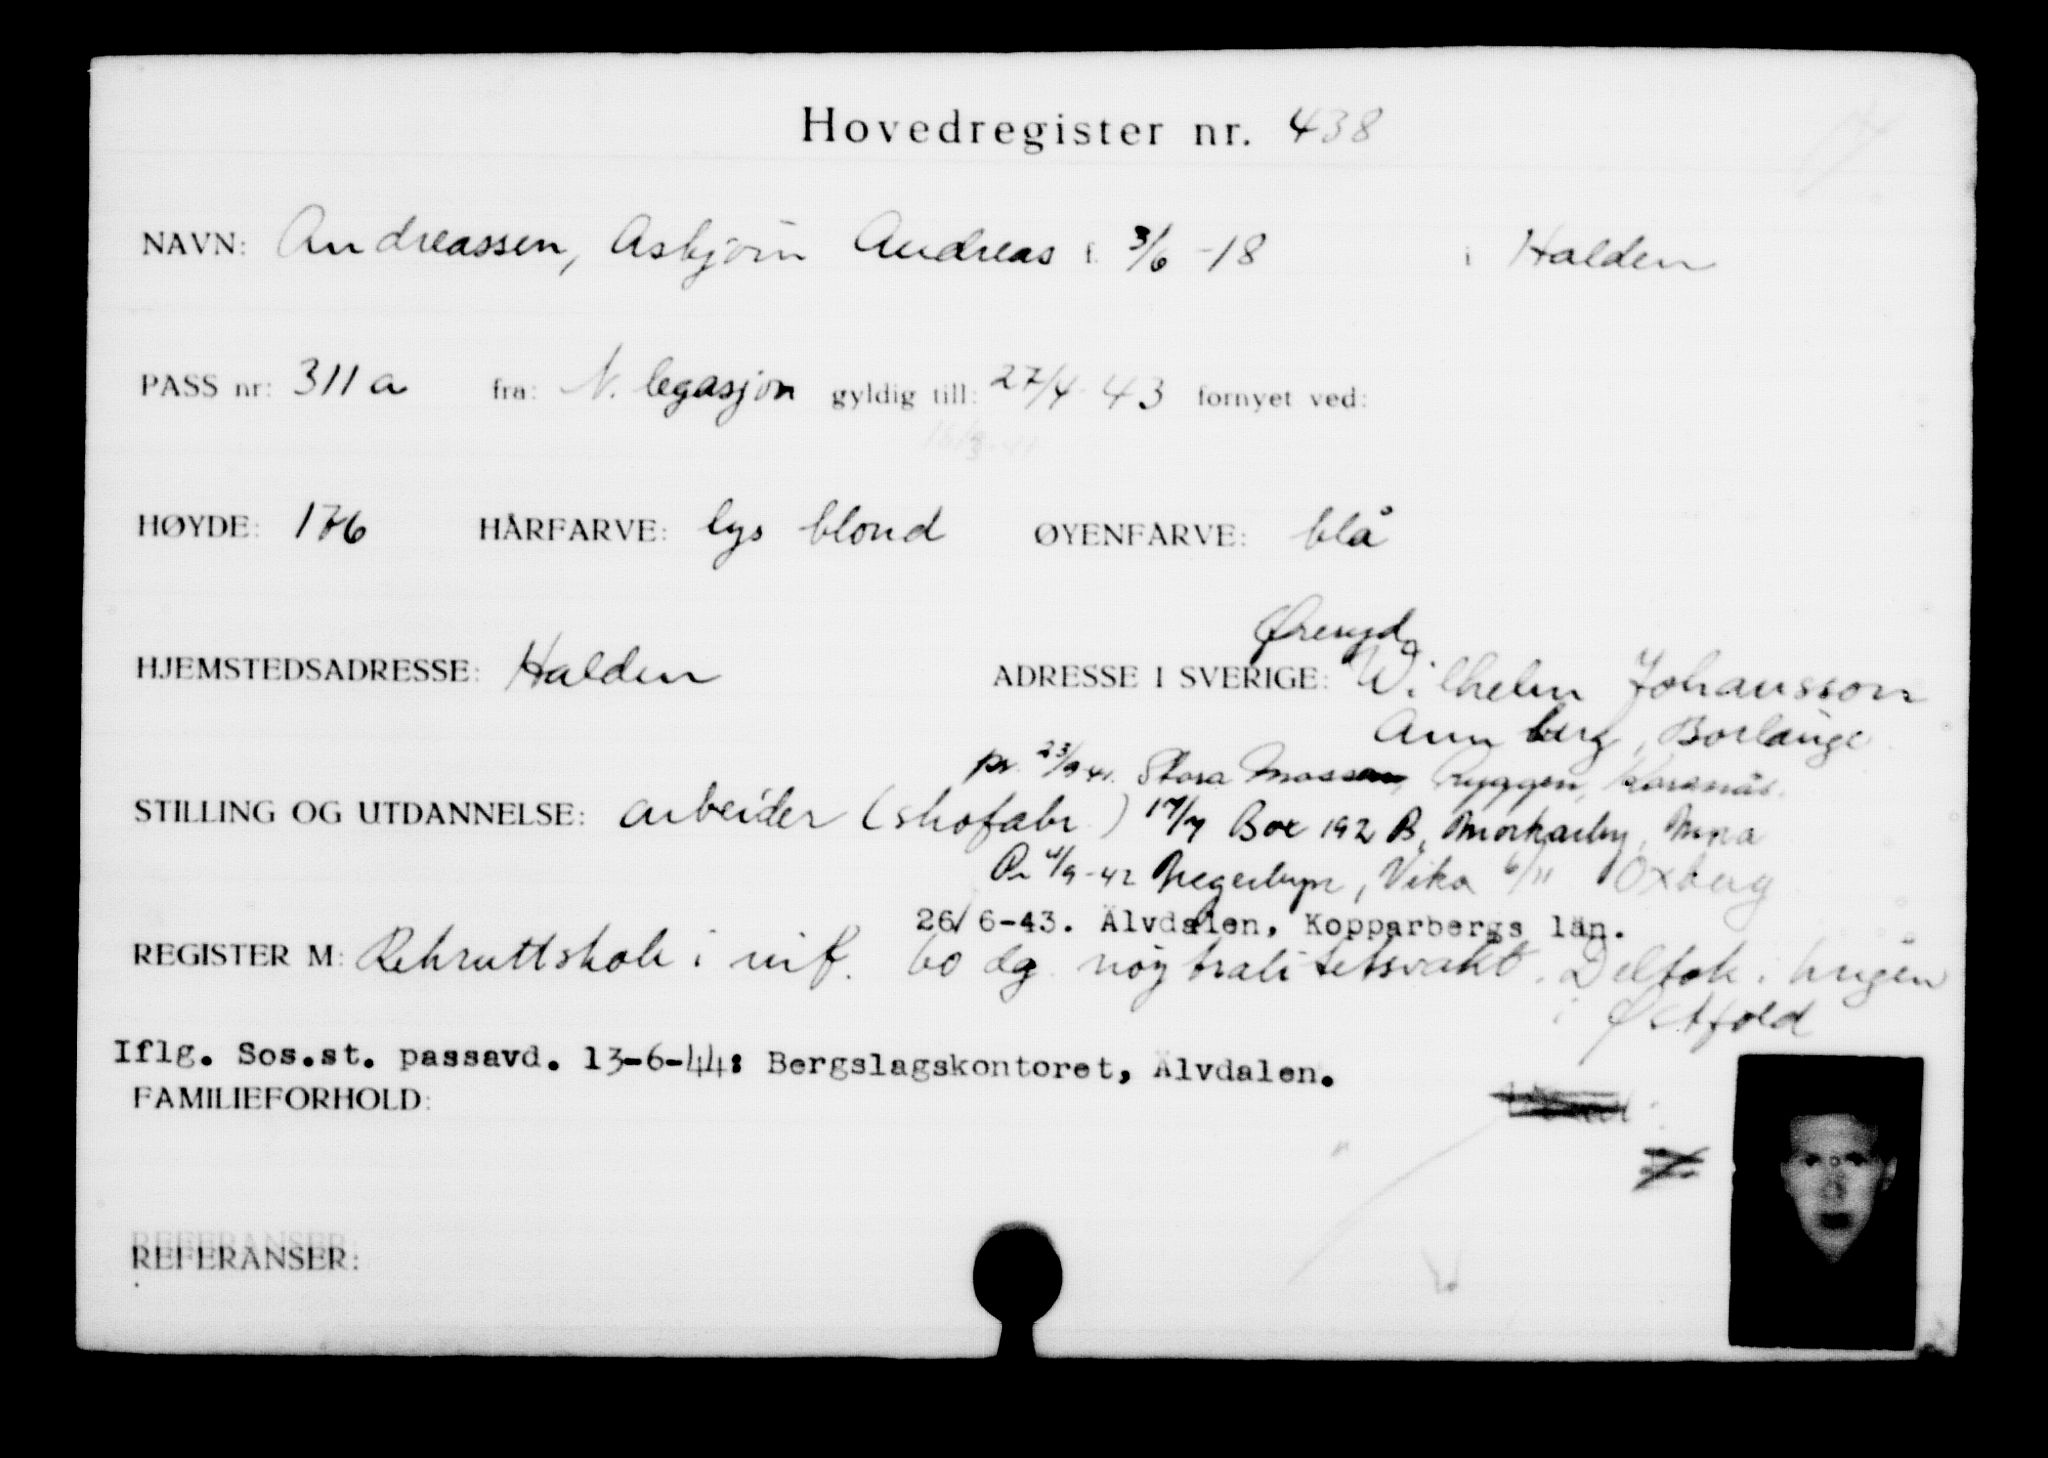 Hovedregister nr. 438
NAVN: Andreassen, Asbjørn Andreas f. 3/6 -18 i Halden
PASS nr: 311 a fra: N. legasjon gyldig till: 27/4-43 fornyet ved:
HØYDE: 176 HÅRFARVE: lys blond ØYENFARVE: blå
HJEMSTEDSADRESSE: Halden ADRESSE I SVERIGE: Wilhelm Johansson
Annberg, Borlänge
pr. 23/9 41. Stora Mossen, Ryggen, Korsnäs.
STILLING OG UTDANNELSE: arbeider (skofabr.) 17/7 Box 192 B, Morkarlby, Mora
Pr 4/9-42 Vika 6/11 Oxberg
26/6-43. Älvdalen, Kopparbergs län.
REGISTER M: Rekruttskole i inf. 60 dg nøytralitetsvakt. Deltok i krigen
i Østfold
Iflg. Sos.st. passavd. 13-6-44: Bergslagskontoret, Älvdalen.
FAMILIEFORHOLD:
REFERANSER: